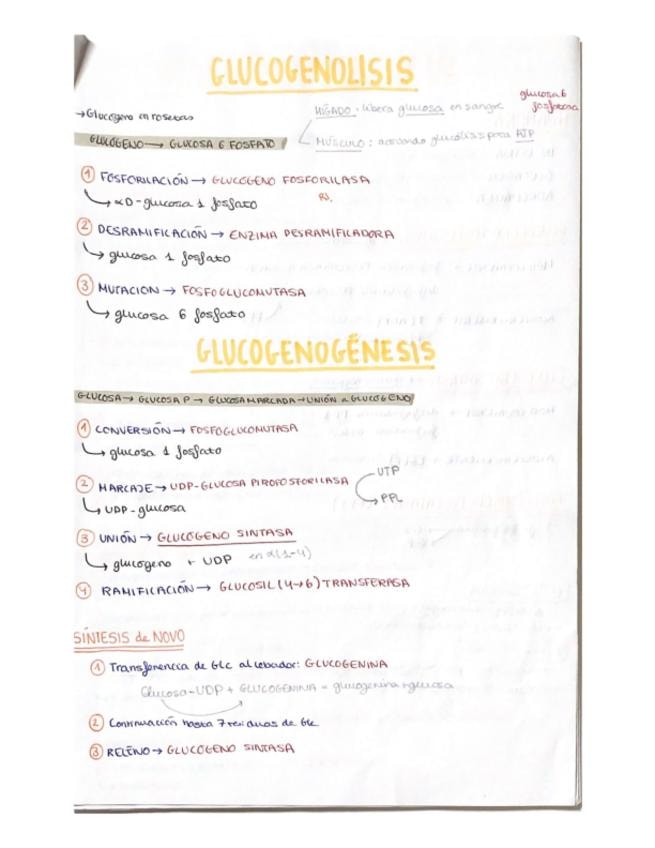 GLUCOGENOLISIS
→ Glucógeno en rosetas
GLUCÓGENO → GLUCOSA 6 FOSFATO
HÍGADO: libera glucosa en sangre glucosa 6 fosfatasa
MÚSCULO: activando glucólisis para ATP
① FOSFORILACIÓN → GLUCÓGENO FOSFORILASA
↳ αD-glucosa 1 fosfato
② DESRAMIFICACIÓN → ENZIMA DESRAMIFICADORA
↳ glucosa 1 fosfato
③ MUTACION → FOSFOGLUCOMUTASA
↳ glucosa 6 fosfato
GLUCOGENOGÉNESIS
GLUCOSA → GLUCOSA P → GLUCOSA MARCADA → UNIÓN a GLUCOGENO
① CONVERSIÓN → FOSFOGLUCOMUTASA
↳ glucosa 1 fosfato
② MARCAJE → UDP-GLUCOSA PIROFOSFORILASA
UTP
PPi
↳ UDP-glucosa
③ UNIÓN → GLUCÓGENO SINTASA
↳ glucogeno + UDP en α(1-4)
④ RAMIFICACIÓN → GLUCOSIL (4→6) TRANSFERASA
SÍNTESIS de NOVO
① Transferencia de Glc al cebador: GLUCOGENINA
Glucosa-UDP + GLUCOGENINA = glucogenina + glucosa
② Continuación hasta 7 residuos de Glc
③ RELENO → GLUCOGENO SINTASA